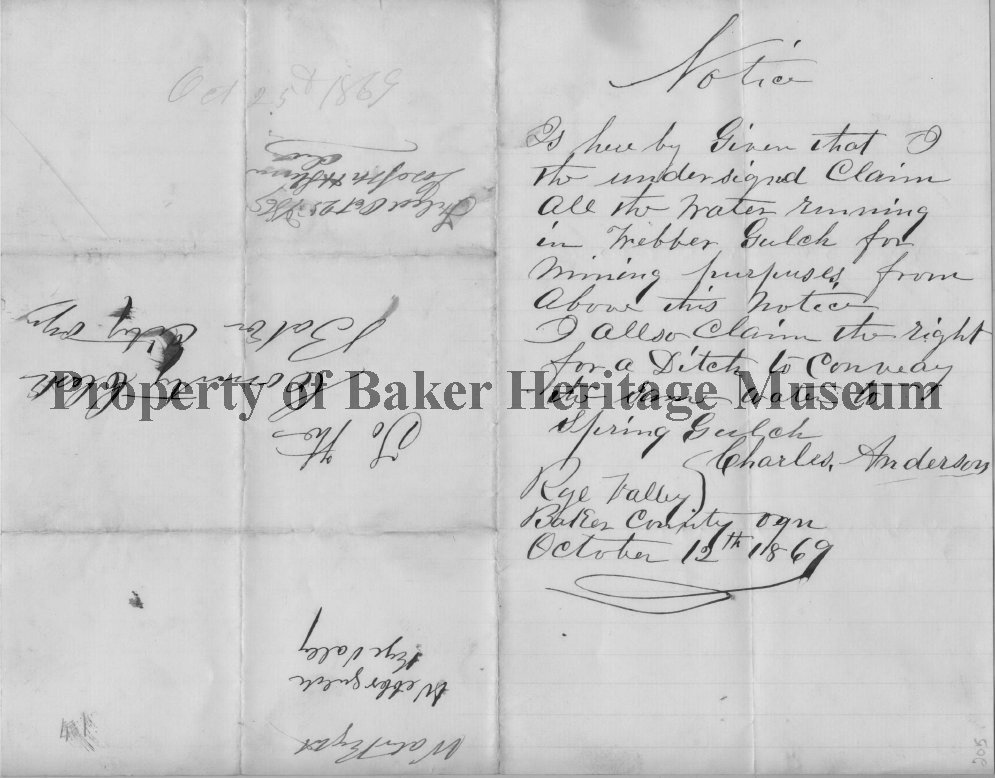 Notice
Is here by Given that I
the undersignd Claim
All the Water running
in Webber Gulch for
Mining purpuses from
Above this Notice
I Allso Claim the right
for a Ditch to Conveay
the same water to
Spring Gulch
Charles, Anderson
Rye Valley
Baker County ogn
October 12th 1869
Oct 25th 1869
Filed Oct 25th 1869
Joseph H Shinn
Clerk
To the
County Clerk
Baker City ogn
Water Right
Webber gulch
Rye Valley
Property of Baker Heritage Museum
205